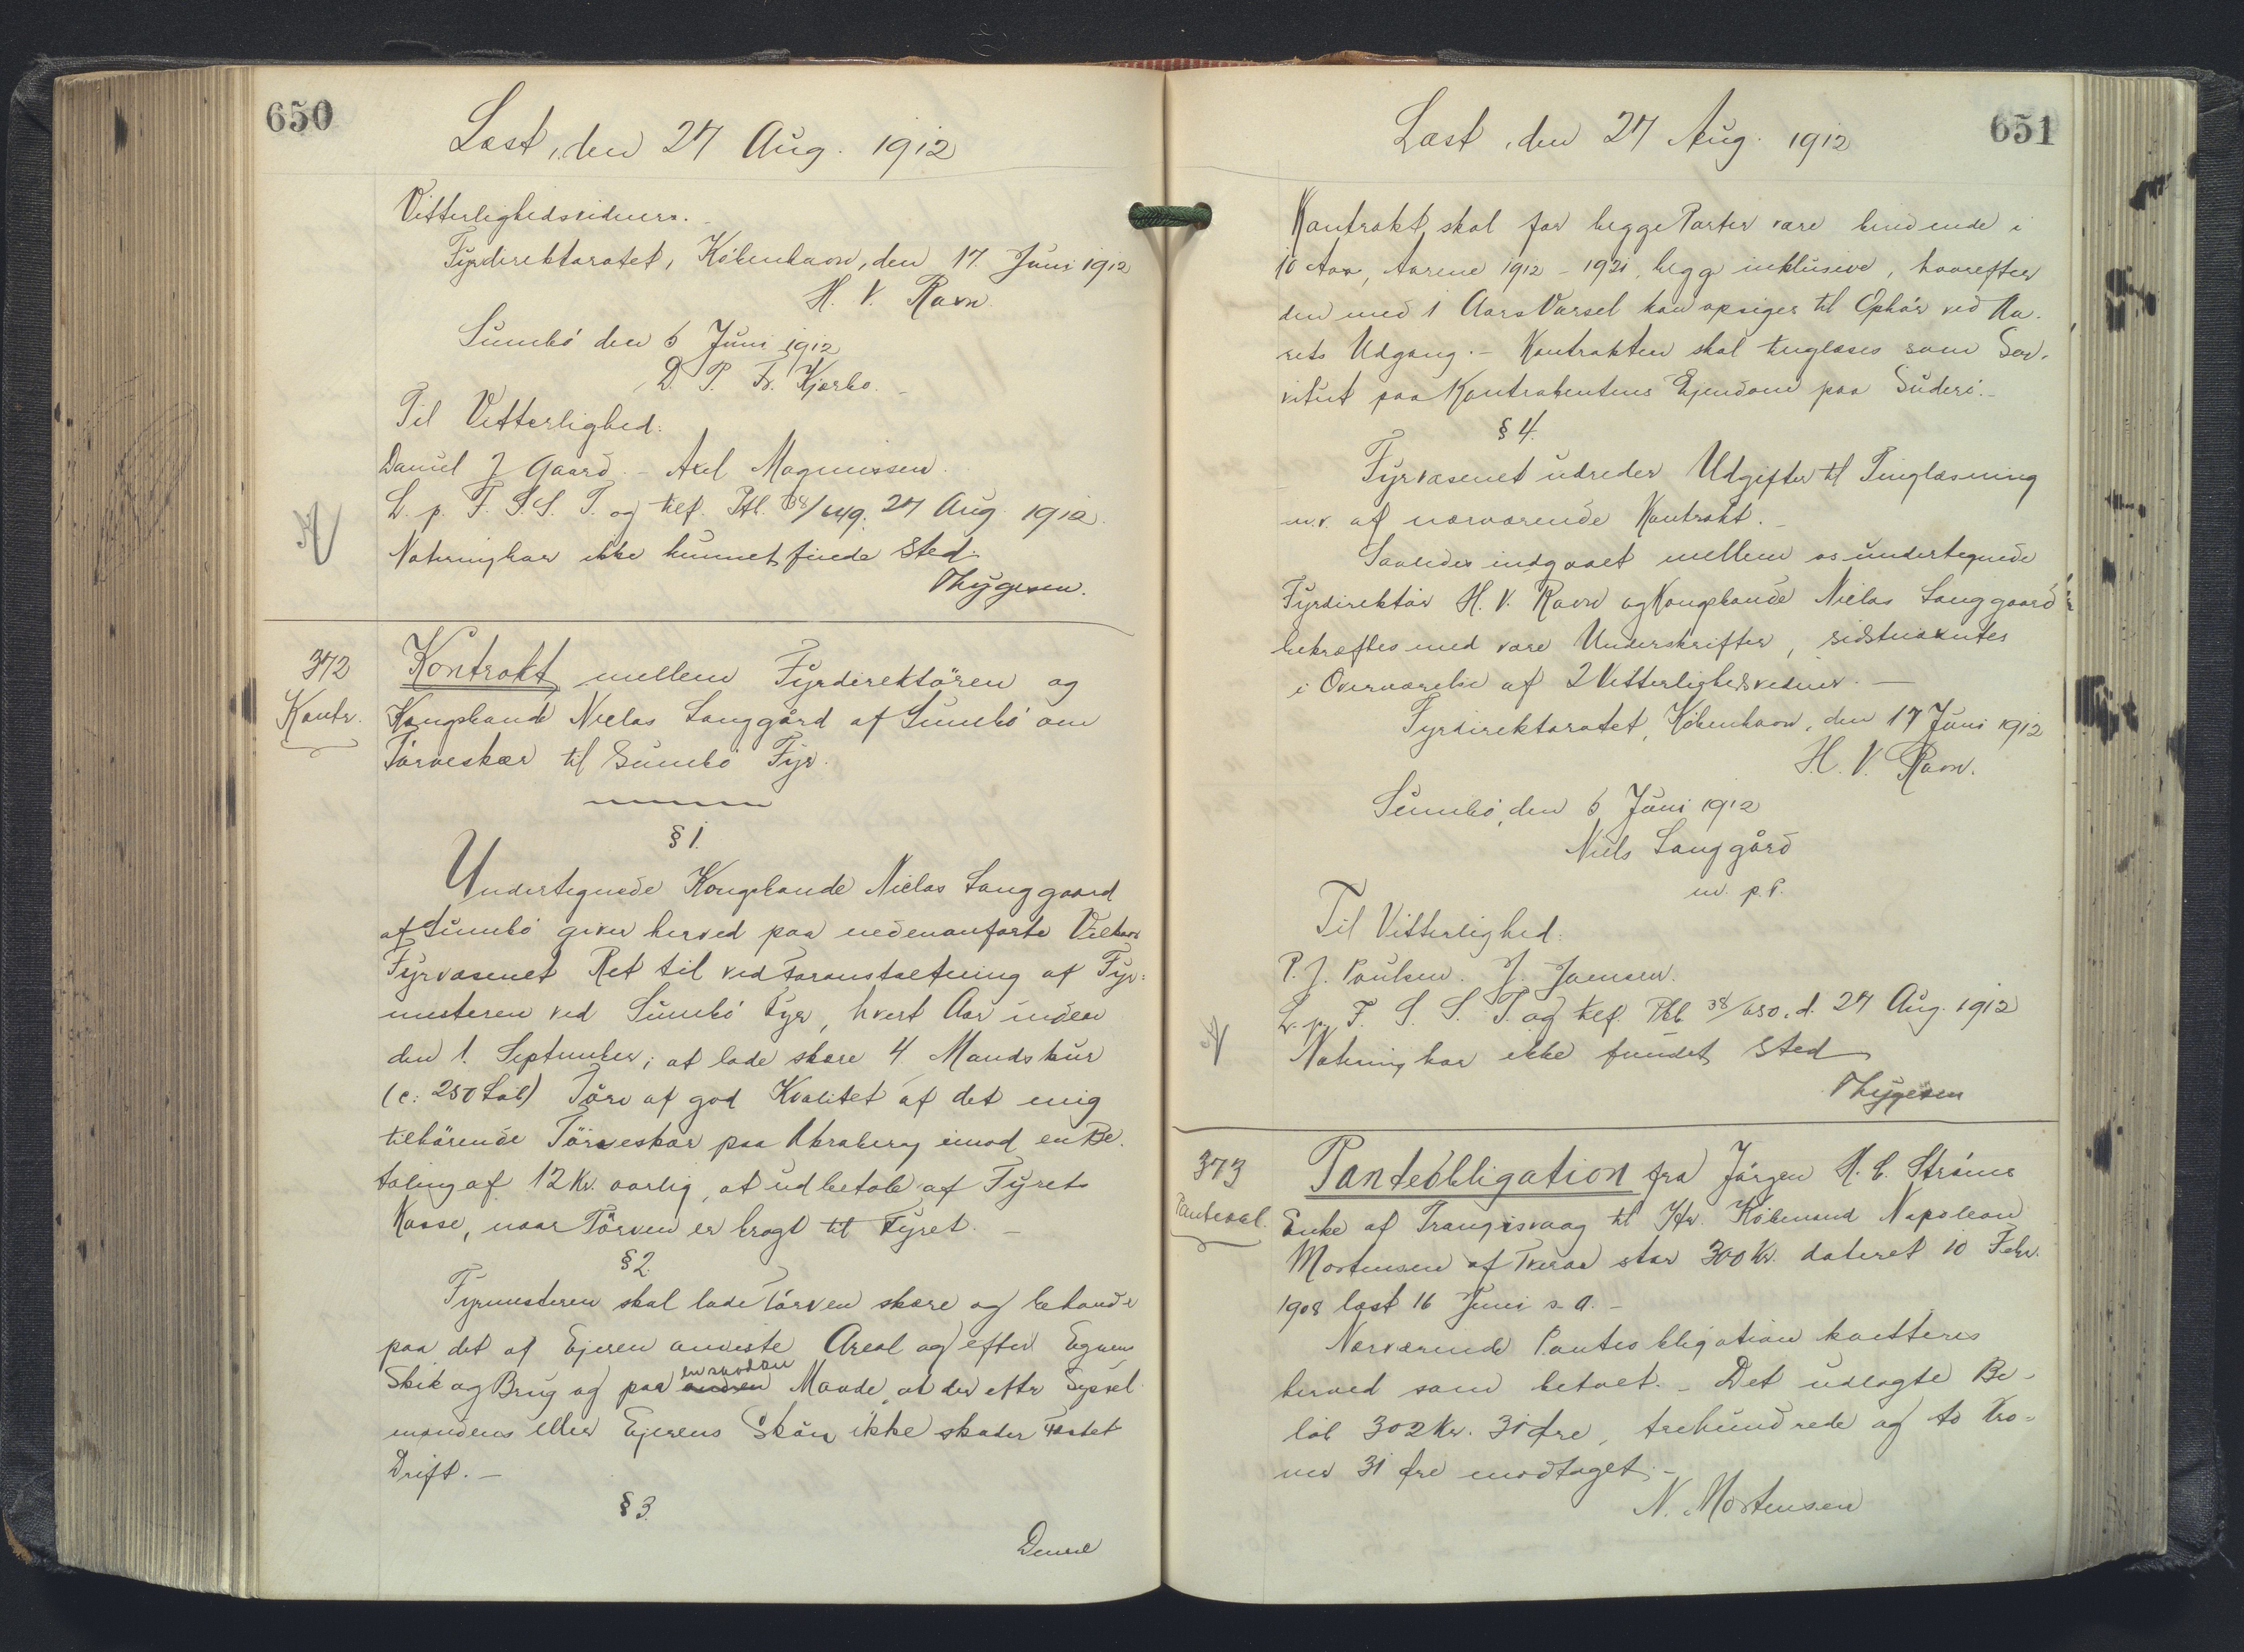 650
Læst, den 27 Aug. 1912
Vitterlighedsvidner.
Fyrdirektoratet, København, den 17. Juni 1912
H. V. Ravn.
Sumbö den 6 Juni 1912
D. P. Fr. Kjærbo.
Til Vitterlighed:
Daniel J Gaard. - Axel Magnussen.
L. p. F. S. S. T. og ref. Ptb. 38/649. 27 Aug 1912.
Notering har ikke kunnet finde Sted.
Thygesen.
372
Kontr.
Kontrakt mellem Fyrdirektören og
Kongsbonde Niclas Langgård af Sumbö om
Törveskær til Sumbö Fyr.
§ 1.
Undertegnede Kongsbonde Niclas Langgaard
af Sumbö giver herved paa nedenanførte Vilkaar
Fyrvæsenet Ret til ved Foranstaltning af Fyr-
mesteren ved Sumbö Fyr, hvert Aar inden
den 1. September, at lade skære 4 Mandskur
(c: 250 Lab) Törv af god Kvalitet af det mig
tilhörende Törveskær paa Akraberg imod en Be-
taling af 12 Kr. aarlig, at udbetale af Fyrets
Kasse, naar Törven er bragt til Fyret. -
§ 2.
Fyrmesteren skal lade Törven skære og behandle
paa det af Ejeren anviste Areal og efter Egnens
Skik og Brug og paa en saadan Maade, at der efter Syssel-
mandens eller Ejerens Skön ikke skader Fæstet
Drift. -
§ 3.
Denne
651
Læst, den 27 Aug. 1912
Kontrakt skal for begge Parter være bindende i
10 Aar, Aarene 1912 - 1921, begge inklusive, hvorefter
den med 1 Aars Varsel kan opsiges til Ophör ved Aa-
rets Udgang. - Kontrakten skal tinglæses som Ser-
vitut paa Kontrahentens Ejendom paa Suderö. -
§ 4.
Fyrvæsenet udreder Udgifter til Tinglæsning
m.v. af nærværende Kontrakt. -
Saaledes indgaaet mellem os undertegnede
Fyrdirektör H. V. Ravn og Kongsbonde Niclas Langgaard
bekræftes med vore Underskrifter, sidstnævntes
i Overværelse af 2 Vitterlighedsvidner. -
Fyrdirektoratet, København, den 17 Juni 1912
H. V. Ravn.
Sumbö, den 6 Juni 1912
Niels Langgård
m. p. P.
Til Vitterlighed:
P. J. Poulsen. J. Joensen.
L. p. F. S. S. T. og ref. Ptb. 38/650. d. 27 Aug. 1912
Notering har ikke fundet Sted
Thygesen
373
Panteobl.
Panteobligation fra Jörgen H. C. Ströms
Enke af Trangisvaag til Hr. Købmand Napoleon
Mortensen af Tveraa stor 300 Kr. dateret 10 Febr.
1908 læst 16 Juni s. A. -
Nærværende Panteobligation kvitteres
herved som betalt. - Det udlagte Be-
löb 302 Kr. 31 Øre, trehundrede og to Kro-
ner 31 Øre modtaget. -
N. Mortensen